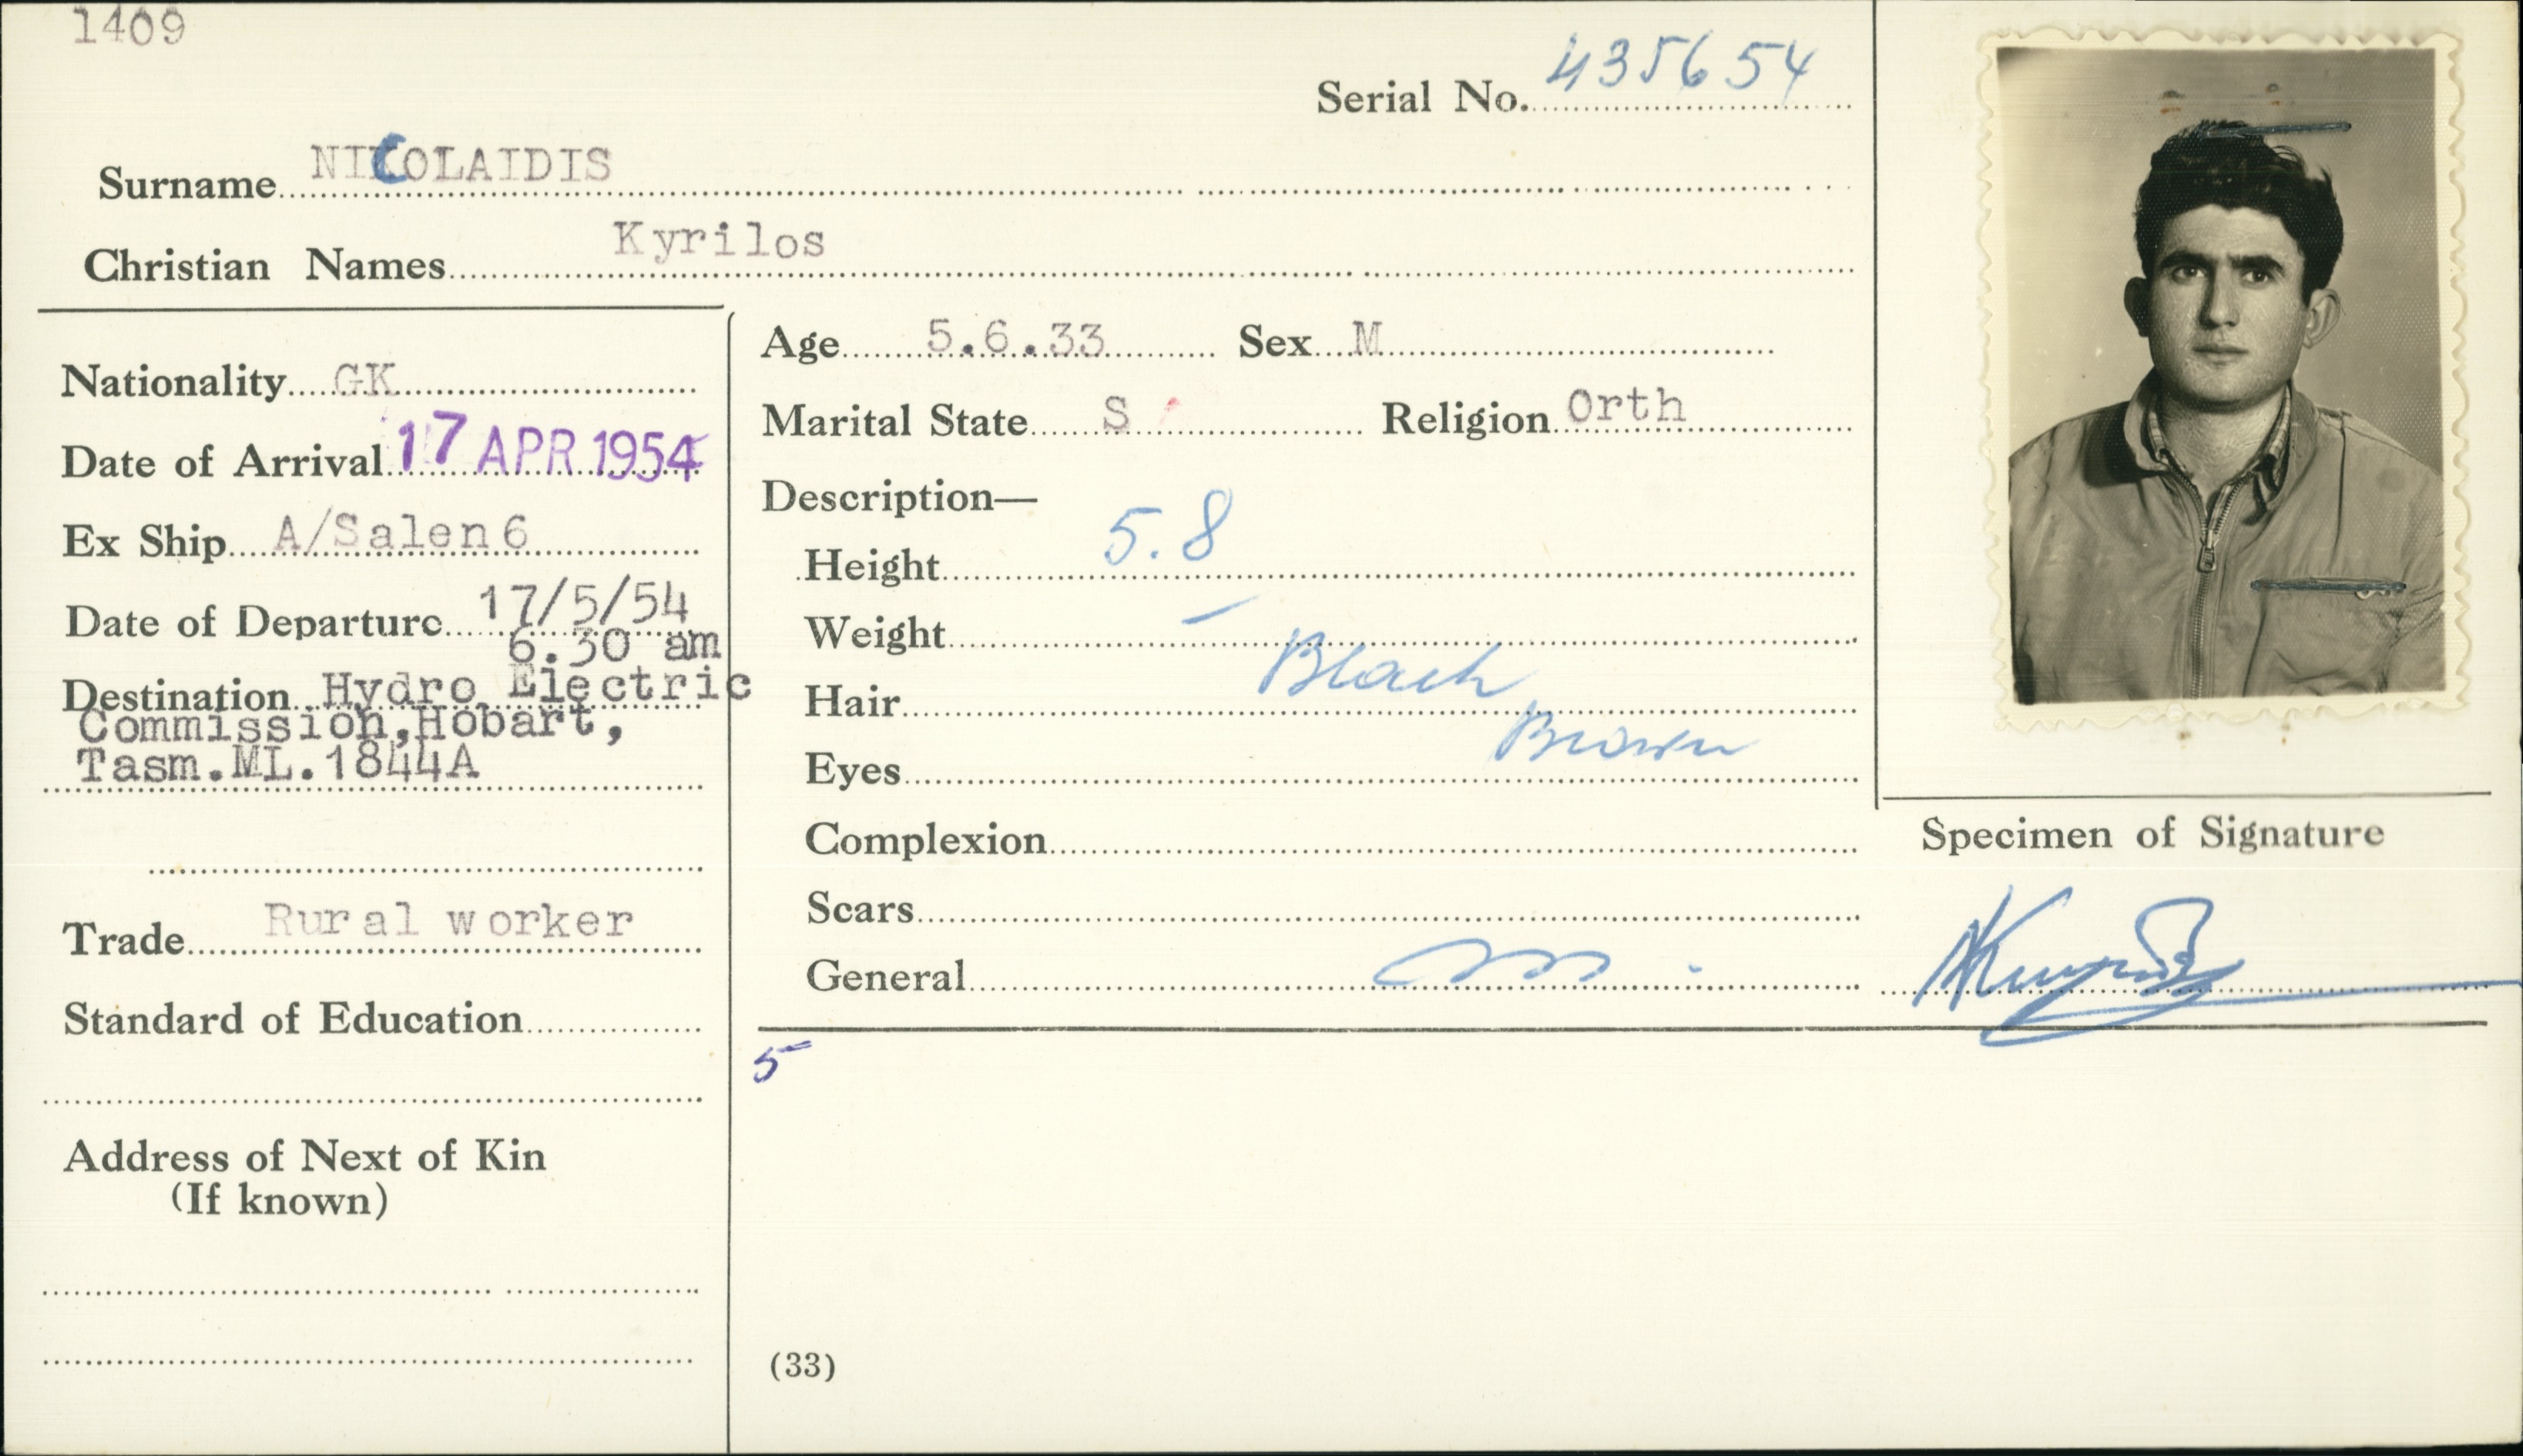 1409
Serial No. 435654
Surname NICOLAIDIS
Christian Names Kyrilos
Nationality GK
Date of Arrival 17 APR 1954
Ex Ship A/Salen6
Date of Departure 17/5/54
6.30 am
Destination Hydro Electric
Commission,Hobart,
Tasm.ML.1844A
Trade Rural worker
Standard of Education
Address of Next of Kin
(If known)
Age 5.6.33 Sex M
Marital State S Religion Orth
Description—
Height 5.8
Weight –
Hair Black
Eyes Brown
Complexion
Scars
General
5
(33)
Specimen of Signature